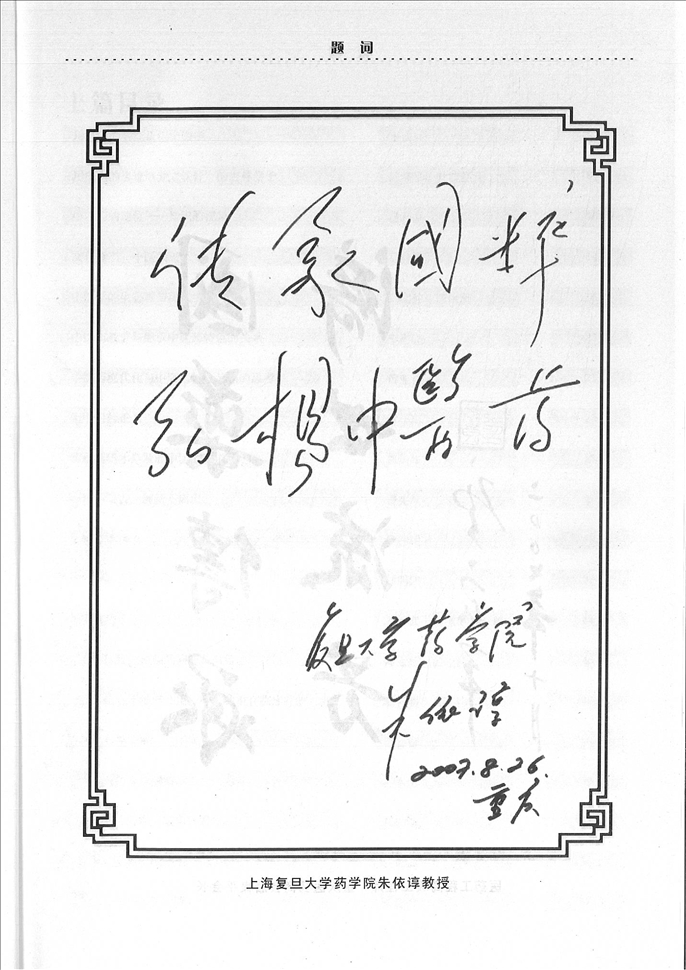 题 词
传承國粹
弘揚中醫药
复旦大学药学院
朱依谆
2007.8.26.
重庆
上海复旦大学药学院朱依谆教授